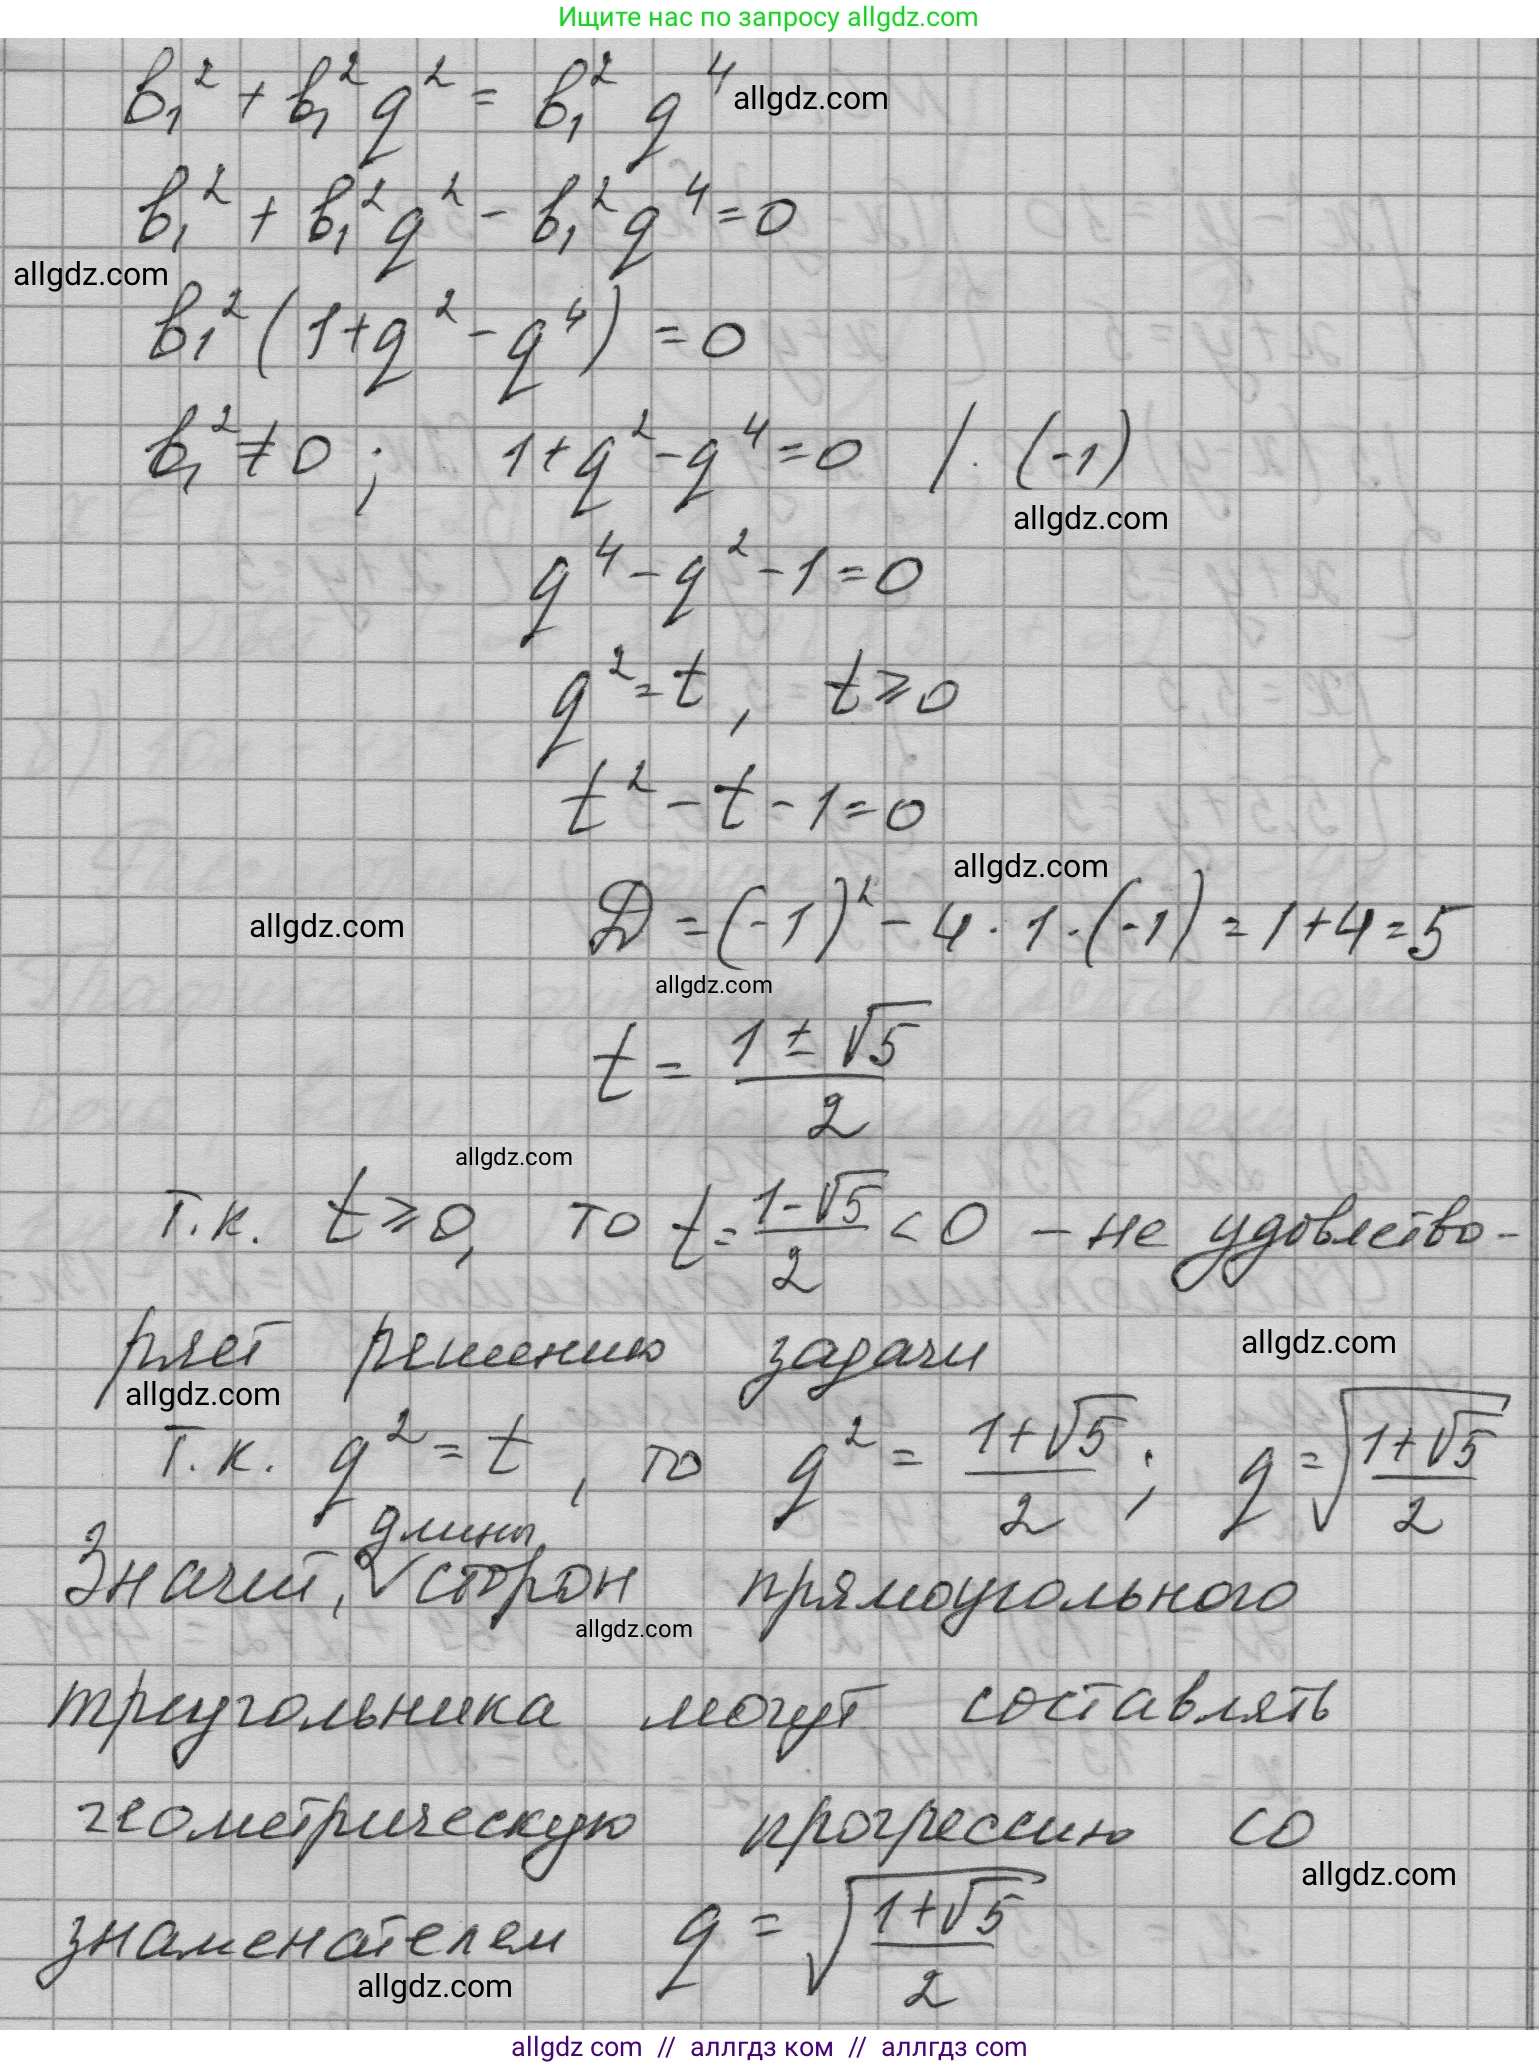 Ищите нас по запросу allgdz.com
b₁² + b₁² q² = b₁² q⁴ allgdz.com
b₁² + b₁² q² - b₁² q⁴ = 0
allgdz.com
b₁² (1 + q² - q⁴) = 0
b₁² ≠ 0 ; 1 + q² - q⁴ = 0 / · (-1)
allgdz.com
q⁴ - q² - 1 = 0
q² = t, t ⩾ 0
t² - t - 1 = 0
allgdz.com
allgdz.com D = (-1)² - 4 · 1 · (-1) = 1 + 4 = 5
allgdz.com
t = (1 ± √5)/2
allgdz.com
т.к. t ⩾ 0, то t = (1 - √5)/2 < 0 - не удовлетво-
ряет решению задачи allgdz.com
allgdz.com
т.к. q² = t, то q² = (1 + √5)/2 ; q = √((1 + √5)/2)
длины
Значит, √ сторон прямоугольного
allgdz.com
треугольника могут составлять
геометрическую прогрессию со
allgdz.com
знаменателем q = √((1 + √5)/2)
allgdz.com
allgdz com // аллгдз ком // аллгdз com